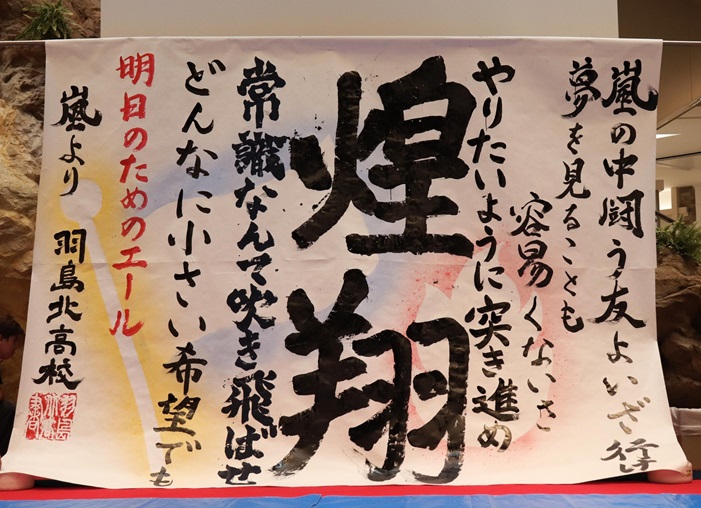 嵐の中闘う友よいざ行け
夢を見ることも
容易くないさ
やりたいように突き進め
煌翔
常識なんて吹き飛ばせ
どんなに小さい希望でも
明日のためのエール
嵐より 羽島北高校